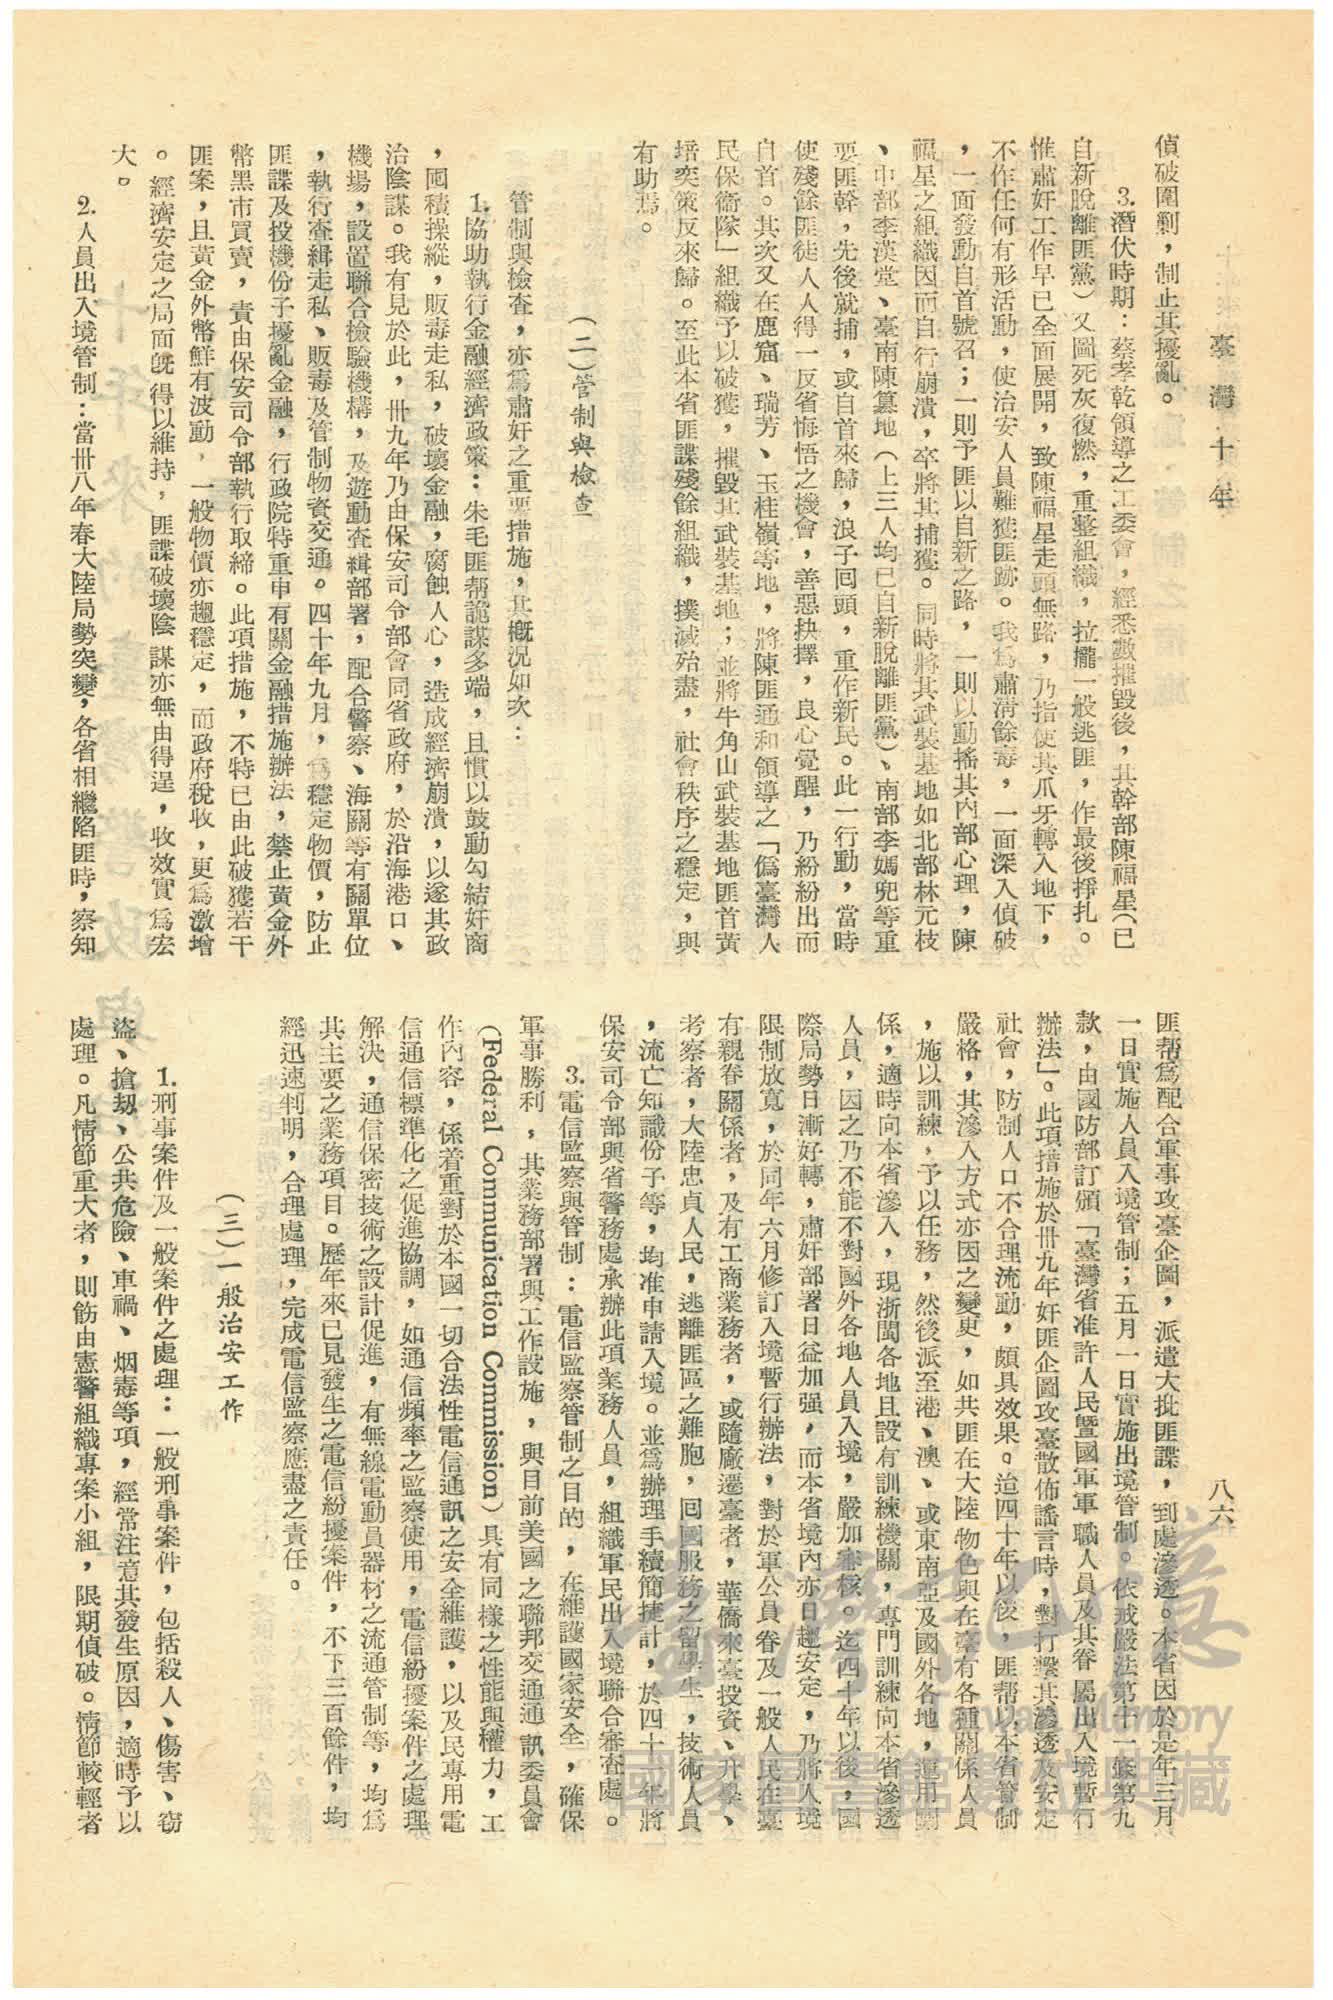 臺灣十年
八六
偵破圍剿，制止其擾亂。
3.潛伏時期：蔡孝乾領導之工委會，經悉數摧毀後，其幹部陳福星（已
自新脫離匪黨）又圖死灰復燃，重整組織，拉攏一般逃匪，作最後掙扎。
惟肅奸工作早已全面展開，致陳福星走頭無路，乃指使其爪牙轉入地下，
不作任何有形活動，使治安人員難獲匪跡。我爲肅清餘毒，一面深入偵破
，一面發動自首號召；一則予匪以自新之路，一則以動搖其內部心理，陳
福星之組織因而自行崩潰，卒將其捕獲。同時將其武裝基地如北部林元枝
、中部李漢堂、臺南陳篡地（上三人均已自新脫離匪黨）、南部李媽兜等重
要匪幹，先後就捕，或自首來歸，浪子回頭，重作新民。此一行動，當時
使殘餘匪徒人人得一反省悔悟之機會，善惡抉擇，良心覺醒，乃紛紛出而
自首。其次又在鹿窟、瑞芳、玉桂嶺等地，將陳匪通和領導之「僞臺灣人
民保衛隊」組織予以破獲，摧毀其武裝基地；並將牛角山武裝基地匪首黃
培奕策反來歸。至此本省匪諜殘餘組織，撲滅殆盡，社會秩序之穩定，與
有助焉。
（二）管制與檢查
管制與檢查，亦爲肅奸之重要措施，其概況如次：
1.協助執行金融經濟政策：朱毛匪幫詭謀多端，且慣以鼓動勾結奸商
，囤積操縱，販毒走私，破壞金融，腐蝕人心，造成經濟崩潰，以遂其政
治陰謀。我有見於此，卅九年乃由保安司令部會同省政府，於沿海港口、
機場，設置聯合檢驗機構，及遊動查緝部署，配合警察、海關等有關單位
，執行查緝走私、販毒及管制物資交通。四十年九月，爲穩定物價，防止
匪諜及投機份子擾亂金融，行政院特重申有關金融措施辦法，禁止黃金外
幣黑市買賣，責由保安司令部執行取締。此項措施，不特已由此破獲若干
匪案，且黃金外幣鮮有波動，一般物價亦趨穩定，而政府稅收，更爲激增
。經濟安定之局面旣得以維持，匪諜破壞陰謀亦無由得逞，收效實爲宏
大。
2.人員出入境管制：當卅八年春大陸局勢突變，各省相繼陷匪時，察知
匪帮爲配合軍事攻臺企圖，派遣大批匪諜，到處滲透。本省因於是年三月
一日實施人員入境管制；五月一日實施出境管制。依戒嚴法第十一條第九
款，由國防部訂頒「臺灣省准許人民暨國軍軍職人員及其眷屬出入境暫行
辦法」。此項措施於卅九年奸匪企圖攻臺散佈謠言時，對打擊其滲透及安定
社會，防制人口不合理流動，頗具效果。迨四十年以後，匪帮以本省管制
嚴格，其滲人方式亦因之變更，如共匪在大陸物色與在臺有各種關係人員
，施以訓練，予以任務，然後派至港、澳、或東南亞及國外各地，運用關
係，適時向本省滲入，現浙閩各地且設有訓練機關，專門訓練向本省滲透
人員，因之乃不能不對國外各地人員入境，嚴加審核。迄四十年以後，國
際局勢日漸好轉，肅奸部署日益加强，而本省境內亦日趨安定，乃將入境
限制放寬，於同年六月修訂入境暫行辦法，對於軍公員眷及一般人民在臺
有親眷關係者，及有工商業務者，或隨廠遷臺者，華僑來臺投資、升學、
考察者，大陸忠貞人民，逃離匪區之難胞，回國服務之留學生，技術人員
，流亡知識份子等，均准申請入境。並爲辦理手續簡捷計，於四十一年將
保安司令部與省警務處承辦此項業務人員，組織軍民出入境聯合審查處。
3.電信監察與管制：電信監察管制之目的，在維護國家安全，確保
軍事勝利，其業務部署與工作設施，與目前美國之聯邦交通通訊委員會
(Federal Communication Commission)具有同樣之性能與權力，工
作內容，係着重對於本國一切合法性電信通訊之安全維護，以及民專用電
信通信標準化之促進協調，如通信頻率之監察使用，電信紛擾案件之處理
解決，通信保密技術之設計促進，有無線電動員器材之流通管制等，均爲
其主要之業務項目。歷年來已見發生之電信紛擾案件，不下三百餘件，均
經迅速判明，合理處理，完成電信監察應盡之責任。
（三）一般治安工作
1.刑事案件及一般案件之處理：一般刑事案件，包括殺人、傷害、竊
盜、搶刼、公共危險、車禍、烟毒等項，經常注意其發生原因，適時予以
處理。凡情節重大者，則飭由憲警組織專案小組，限期偵破。情節較輕者
臺灣記憶
Taiwan Memory
國家圖書館數位典藏